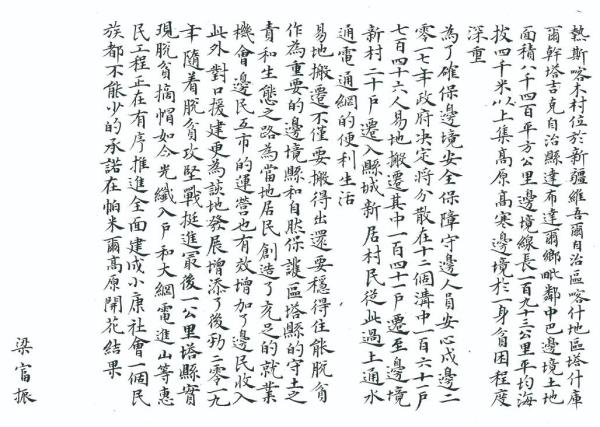 熱斯喀木村位於新疆維吾爾自治區喀什地區塔什庫
爾幹塔吉克自治縣達布達爾鄉毗鄰中巴邊境土地
面積八千四百平方公里邊境線長一百九十三公里平均海
拔四千米以上集高原高寒邊境於一身貧困程度
深重
為了確保邊境安全保障守邊人員安心戍邊二
零一七年政府决定將分散在十二個溝中一百六十一户
七百四十六人易地搬遷其中一百四十一户遷至邊境
新村二十户遷入縣城新居村民從此過上通水
通電通網的便利生活
易地搬遷不僅要搬得出還要穩得住能脱貧
作為重要的邊境縣和自然保護區塔縣的守土之
責和生態之路為當地居民創造了充足的就業
機會邊民互市的運營也有效增加了邊民收入
此外對口援建更為該地發展增添了後勁二零一九
年隨着脱貧攻堅戰挺進最後一公里塔縣實
現脱貧摘帽如今光纖入户和大網電進山等惠
民工程正在有序推進全面建成小康社會一個民
族都不能少的承諾在帕米爾高原開花結果
梁富振